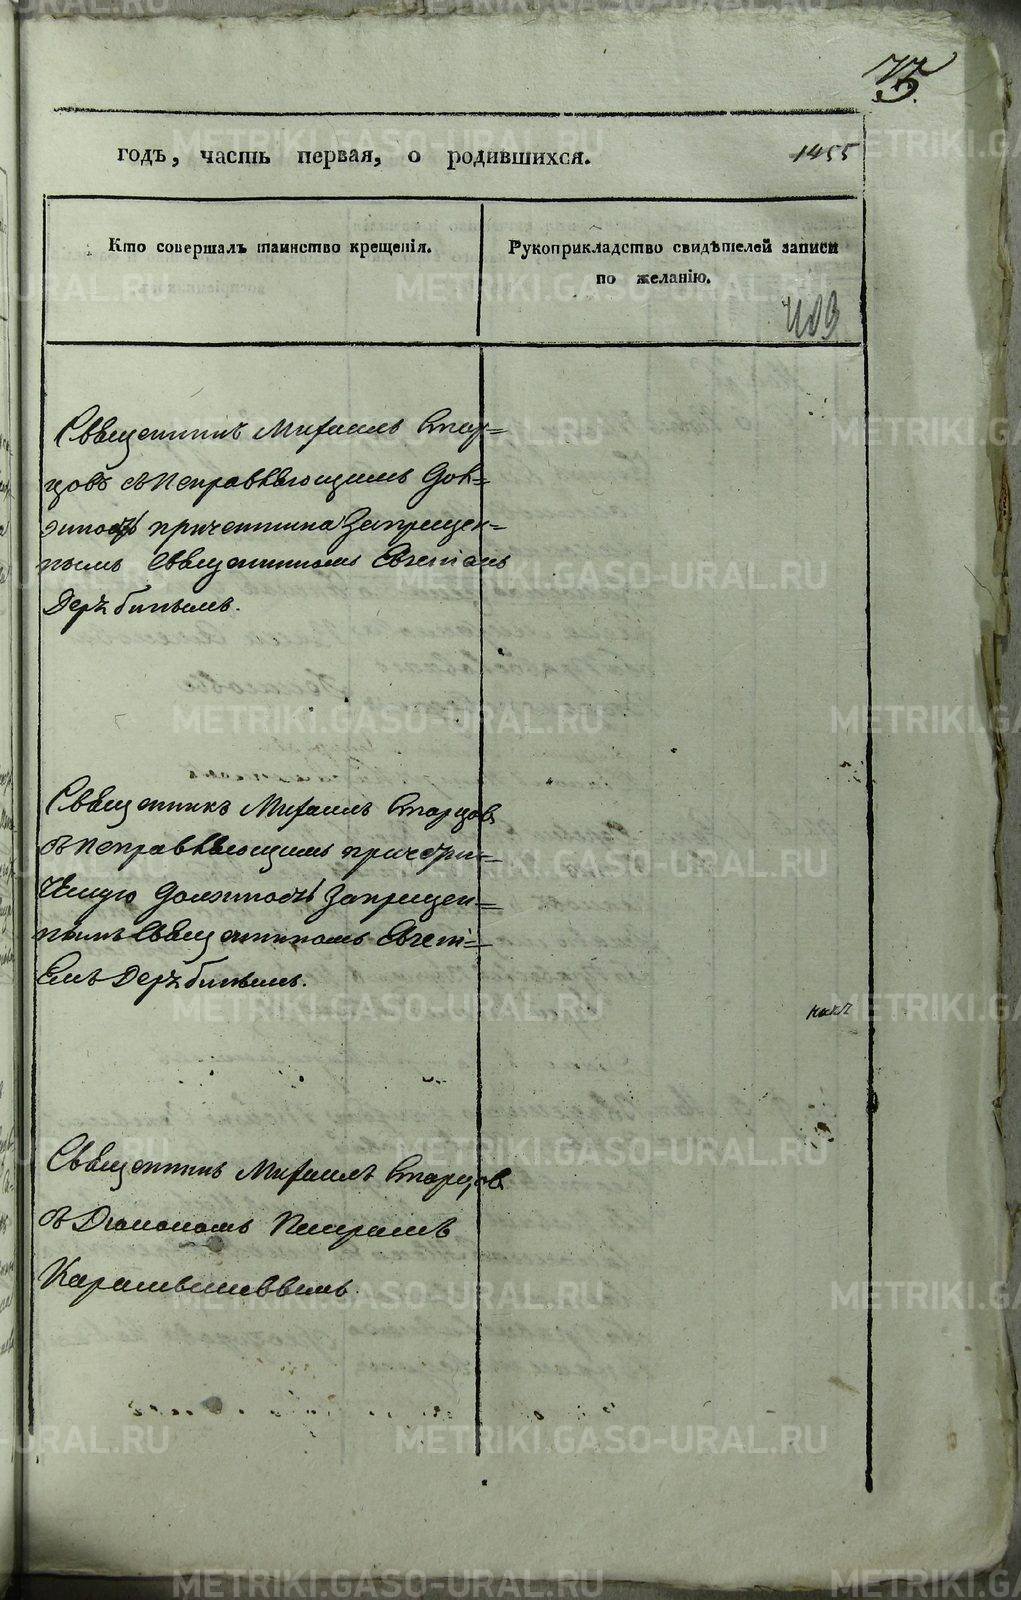 75.
годъ, часть первая, о родившихся. 1455
Кто совершалъ таинство крещенія.
Рукоприкладство свидѣтелей записи
по желанію.
403
Священникъ Михаилъ Стар=
цовъ съ исправляющимъ дол=
жность причетника Запрещен=
нымъ Священникомъ Евгеніемъ
Дерябинымъ.
Священникъ Михаилъ Старцовъ
съ исправляющимъ причетни=
ческую должность Запрещен=
нымъ Священникомъ Евгені=
емъ Дерябинымъ.
Священникъ Михаилъ Старцовъ
съ Діакономъ Петромъ
Карамышевымъ.
METRIKI.GASO-URAL.RU